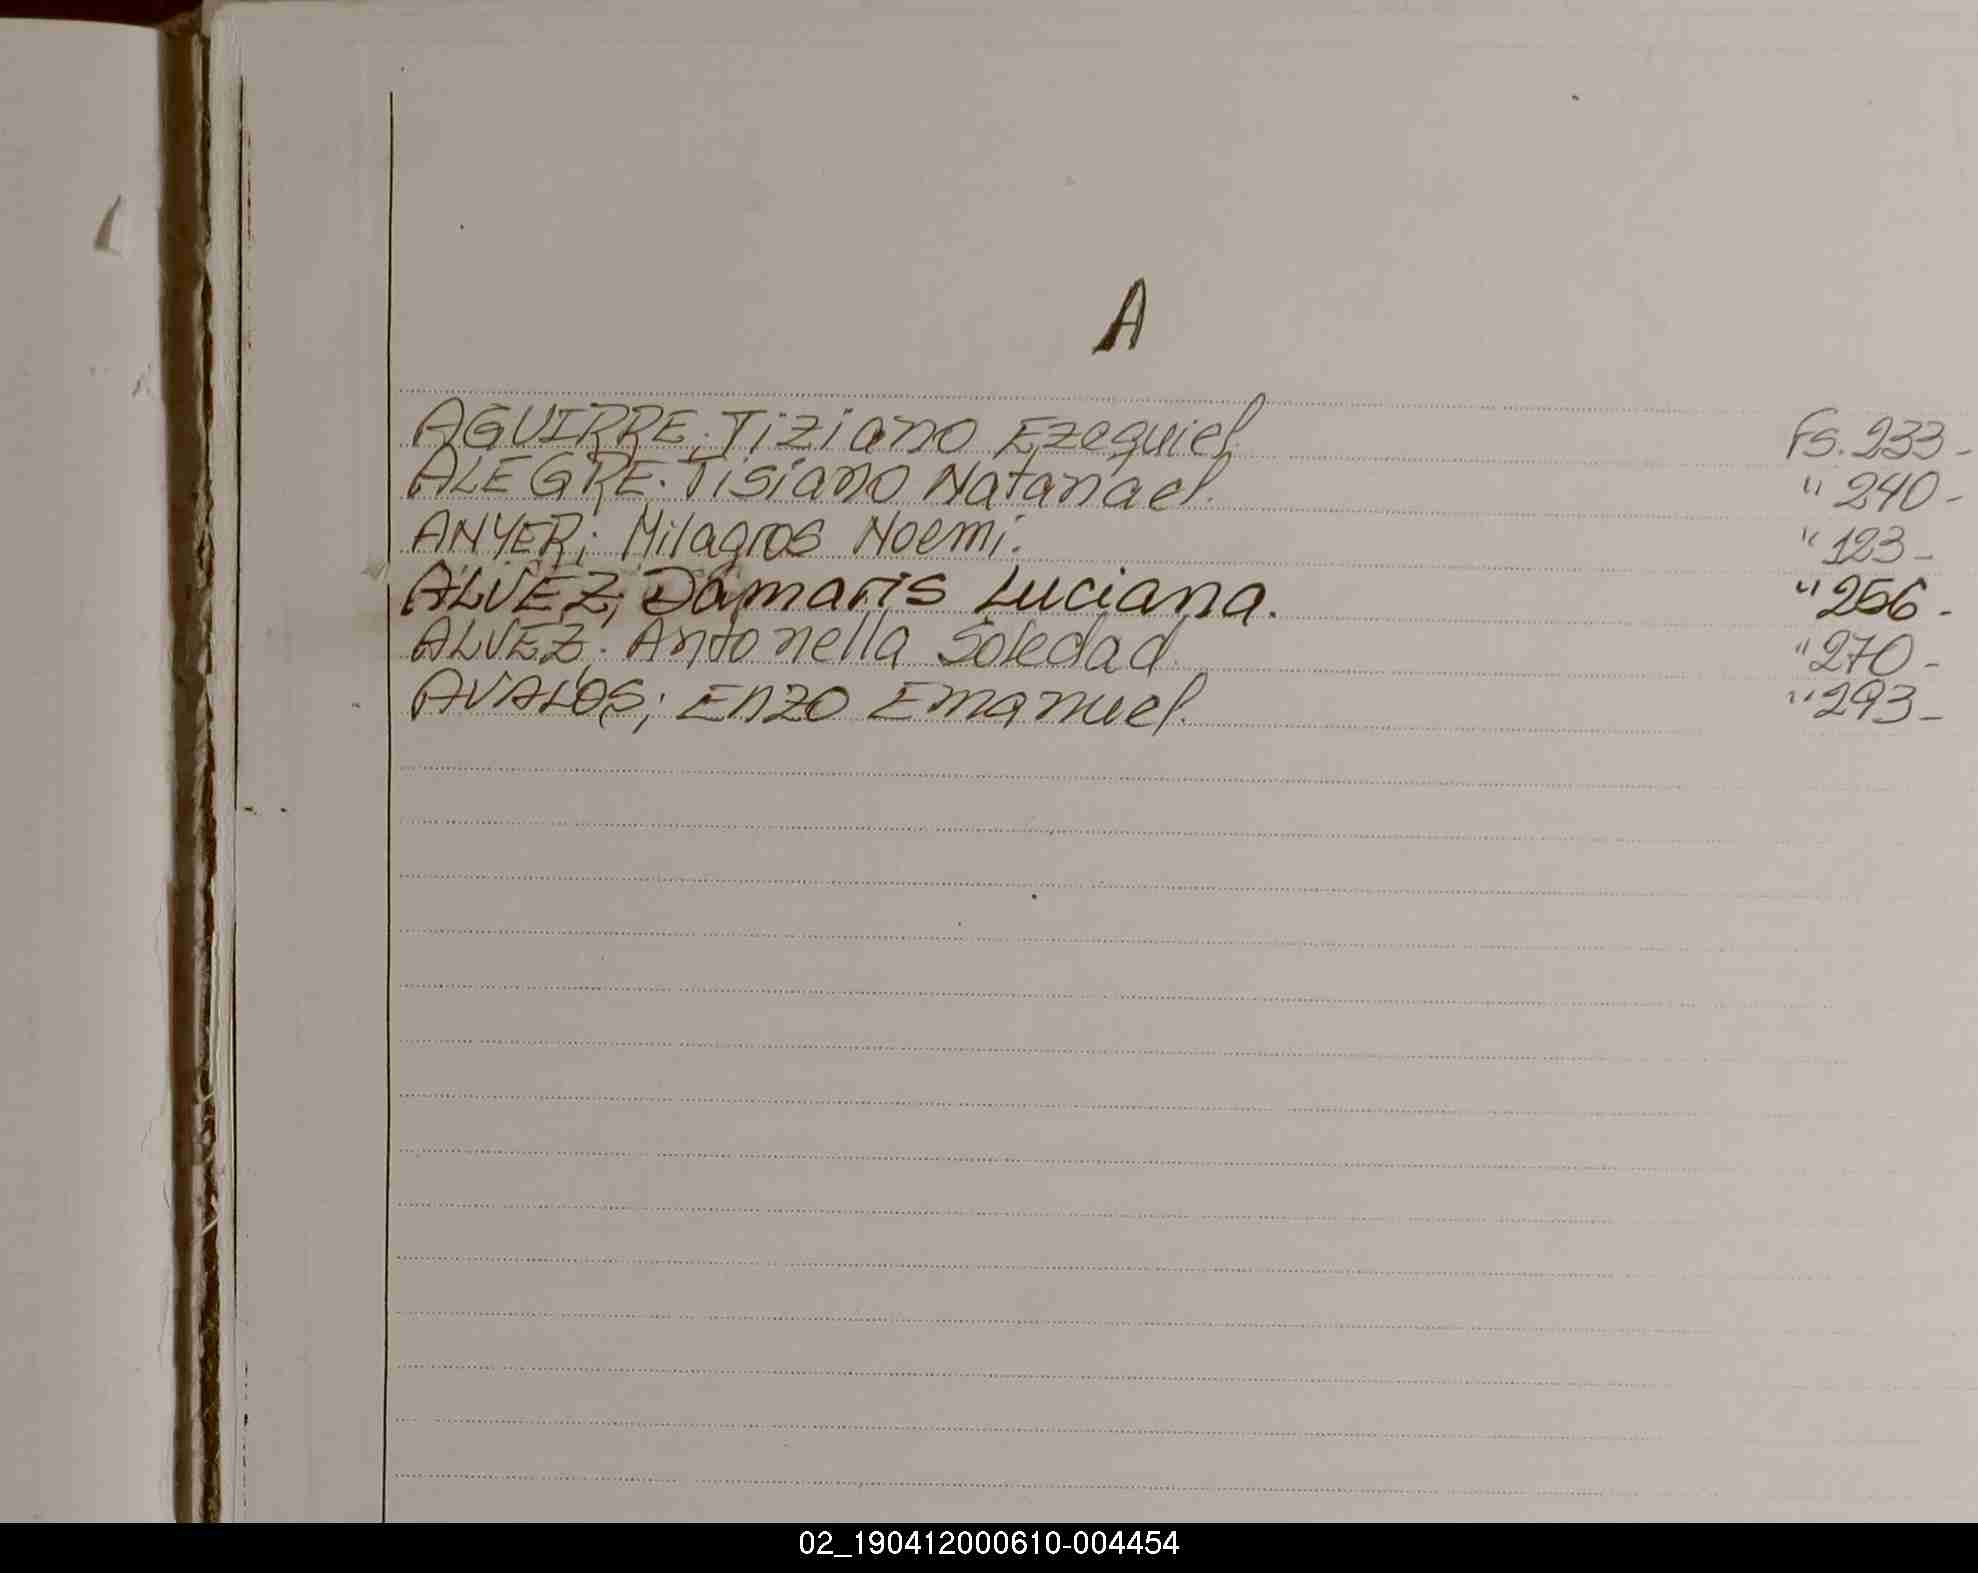 A
AGUIRRE; Tiziano Ezequiel. Fs. 233-
ALEGRE; Tisiano Natanael. " 240-
ANYER; Milagros Noemi. " 123-
ALVEZ; Damaris Luciana. " 256-
ALVEZ; Antonella Soledad. " 270-
AVALOS; Enzo Emanuel. " 293-
02_190412000610-004454